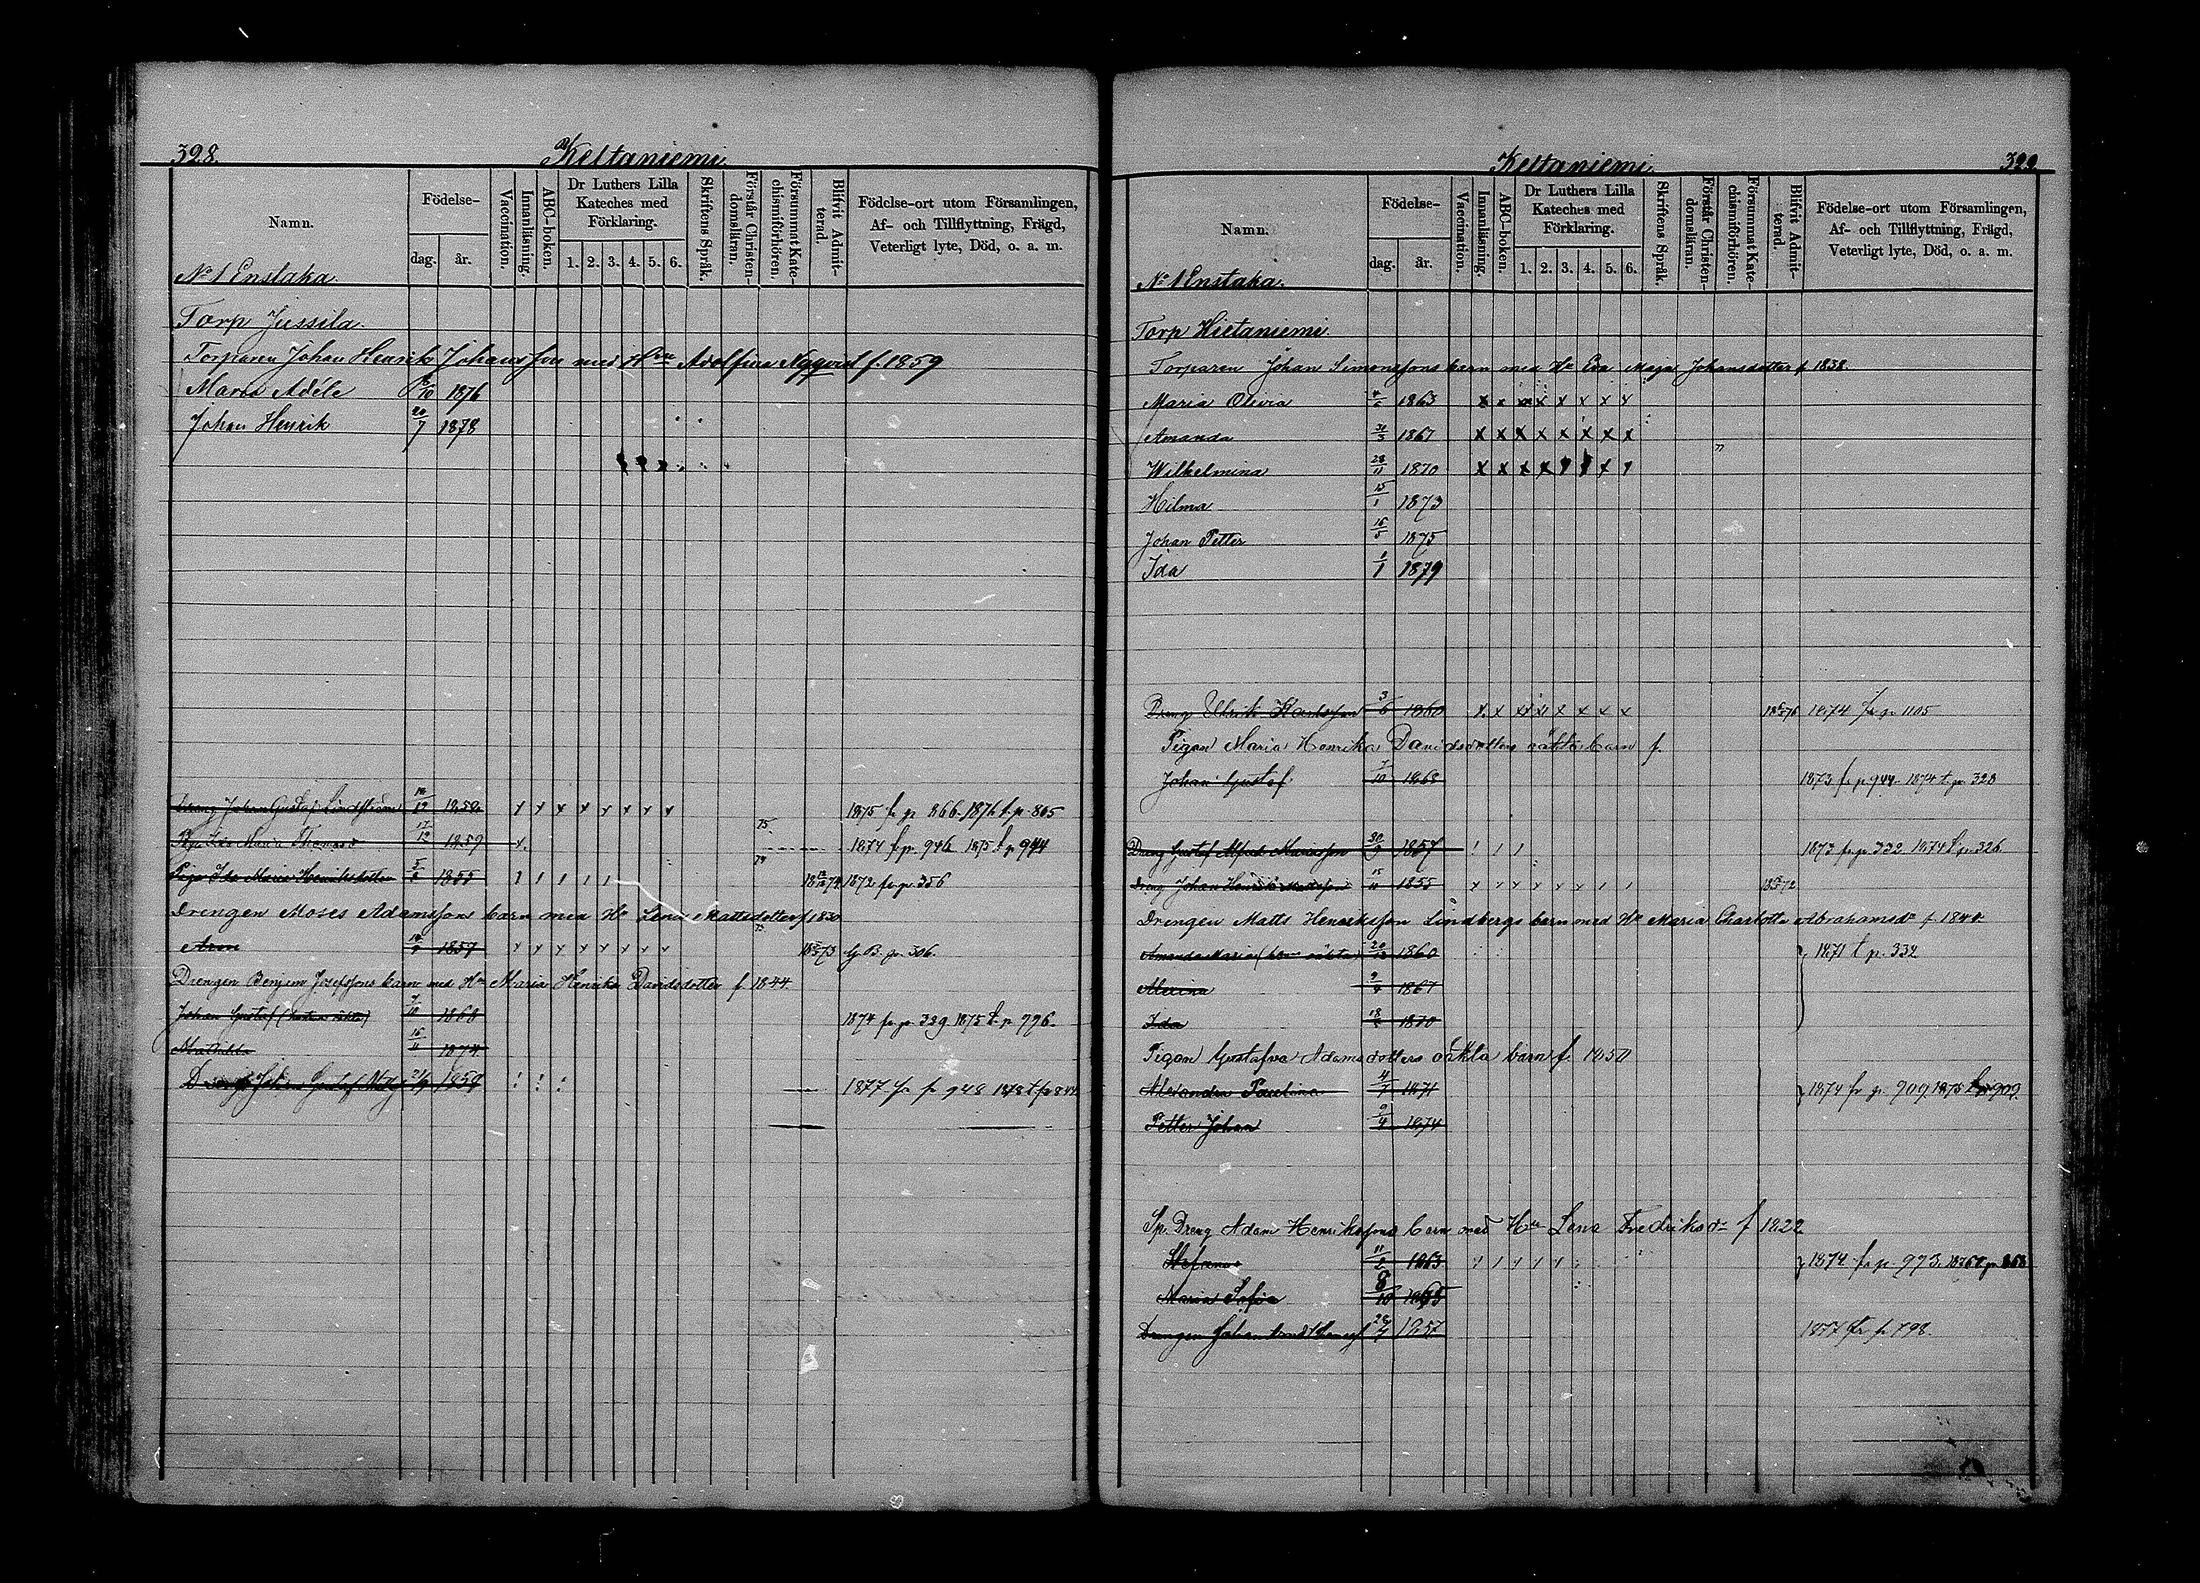 328.
Keltaniemi.
Namn.
Födelse-
dag. år.
Vaccination.
Innanläsning.
ABC-boken.
Dr Luthers Lilla Kateches med Förklaring.
1. 2. 3. 4. 5. 6.
Skriftens Språk.
Förstår Christendomsläran.
Försummat Katechismiförhören.
Blifvit Admitterad.
Födelse-ort utom Församlingen, Af- och Tillflyttning, Frägd, Veterligt lyte, Död, o. a. m.
No 1 Enstaka.
Torp Jussila.
Torparen Johan Henrik Johansson med Hru Adolfina Nyqvist f. 1859
Maria Adéle 1876
Johan Henrik 20/7 1878
Dreng Johan Gustaf Lindström x x x x x x x x 1875 fr. p. 866. 1876 t. p. 865
Piga Ida Maria 17/12 1859 x. 75 1874 f. p. 946 1875 t. p. 944
Piga Ida Maria Henriksdotter 1855 1 1 1 1 1 74 1872 fr. p. 356
Drengen Moses Adamssons barn med Hu Lena Mattsdotter f. 1830
Aron 1857 x x x x x x x x 73 G. B. p. 306.
Drengen Benjam Josefssons barn med Hu Maria Henrika Davidsdotter f 1844.
Johan Gustaf 7/10 1868 1874 fr. p. 329 1875 t. p. 796.
Mathilda 1874
Dreng Johan Gustaf 1859 1877 fr p 948 1878 t p 844
Keltaniemi.
329.
Namn.
Födelse-
dag. år.
Vaccination.
Innanläsning.
ABC-boken.
Dr Luthers Lilla Kateches med Förklaring.
1. 2. 3. 4. 5. 6.
Skriftens Språk.
Förstår Christendomsläran.
Försummat Katechismiförhören.
Blifvit Admitterad.
Födelse-ort utom Församlingen, Af- och Tillflyttning, Frägd, Veterligt lyte, Död, o. a. m.
No 1 Enstaka.
Torp Hietaniemi.
Torparen Johan Simonssons barn med Hu Eva Maja Johansdotter f 1838.
Maria Olivia 1863 x x x x x x x x
Amanda 1867 x x x x x x x x
Wilhelmina 28/11 1870 x x x x x x x x
Hilma 15/1 1873
Johan Petter 16/5 1875
Ida 1879
Dreng Ulrik Karlsson 3/6 1860 x x x x x x x x 76 1874 fr p. 1105
Pigan Maria Henrika Davidsdotters oäkta barn f.
Johan Gustaf 7/10 1868 1873 fr p. 944. 1874 t. p. 328
Dreng Gustaf Alfred 30/9 1857 1 1 1 1873 fr. p. 332 1874 t. p. 326
Dreng Johan Henrik Mattsson 1855 x x x x x x 1 1 72
Drengen Matts Henriksson Lindbergs barn med Hu Maria Charlotta Abrahamsdr f 1844.
Amanda Maria (hans oäkta) 20/12 1860 1871 t. p. 332
Alexina 1867
Ida 1870
Pigan Gustafva Adamsdotters oäkta barn f. 1850
Alexandra Paulina 4/7 1871 1874 fr p. 909. 1875 t p 909.
Petter Johan 9/4 1874
Sp. Dreng Adam Henrikssons barn med Hu Lena Fredriksdr f 1822
Stefanus 1863 1874 fr p. 973.
Maria Sofia 8/10 1865
Drengen Johan 1857 1877 fr p 798.